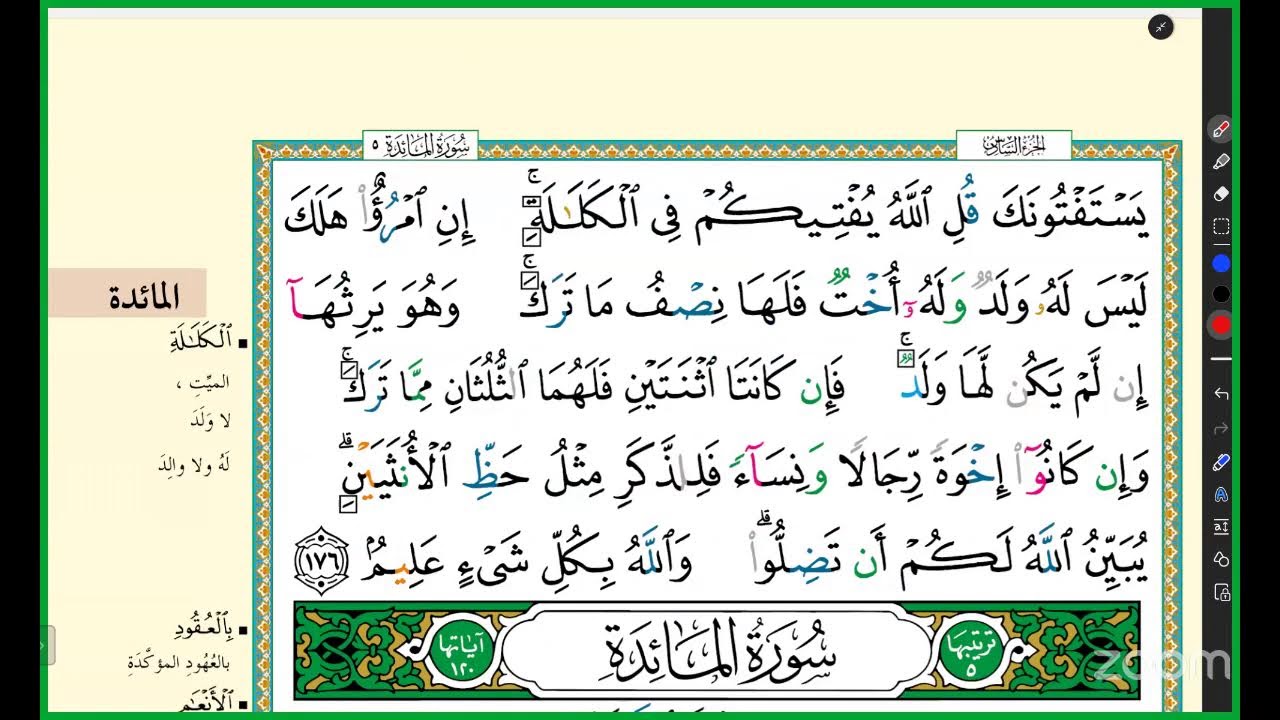 سُورَةُ المَائدَة ٥
الجُزءُ السَّادِسُ
يَسْتَفْتُونَكَ قُلِ ٱللَّهُ يُفْتِيكُمْ فِى ٱلْكَلَـٰلَةِ ۚ إِنِ ٱمْرُؤٌا۟ هَلَكَ
لَيْسَ لَهُۥ وَلَدٌ وَلَهُۥٓ أُخْتٌ فَلَهَا نِصْفُ مَا تَرَكَ ۚ وَهُوَ يَرِثُهَآ
إِن لَّمْ يَكُن لَّهَا وَلَدٌ ۚ فَإِن كَانَتَا ٱثْنَتَيْنِ فَلَهُمَا ٱلثُّلُثَانِ مِمَّا تَرَكَ ۚ
وَإِن كَانُوٓا۟ إِخْوَةً رِّجَالًا وَنِسَآءً فَلِلذَّكَرِ مِثْلُ حَظِّ ٱلْأُنثَيَيْنِ ۗ
يُبَيِّنُ ٱللَّهُ لَكُمْ أَن تَضِلُّوا۟ ۗ وَٱللَّهُ بِكُلِّ شَىْءٍ عَلِيمٌۢ ١٧٦
ترتيبها ٥
سُورَةُ المَائدَة
آياتها ١٢٠
المائدة
ٱلْكَلَـٰلَةِ
الميِّتِ ،
لا وَلَدَ
لَهُ ولا والِدَ
بِٱلْعُقُودِ
بالعُهُودِ المؤكَّدَةِ
ٱلْأَنْعَـٰمِ
zoom